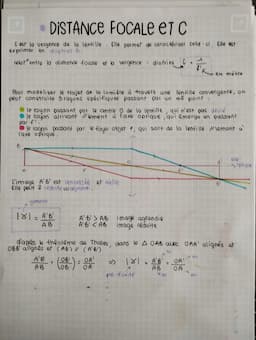 DISTANCE FOCALE et C
C est la vergence de la lentille. Elle permet de caractériser celle ci. Elle est
exprimée en
relat° entre la distance focale et la vergence : dioptries C = 1/f'
en mètre
Pour modéliser le trajet de la lumière à travers une lentille convergente, on
peut construire 3 rayons spécifiques passant par un même point :
le rayon passant par le centre O de la lentille, qui n'est pas dévié
le rayon arrivant parallèlement à l'axe optique, qui émerge en passant
par F'.
le rayon passant par le foyer objet F, qui sort de la lentille parallèlement à
l'axe optique.
B
A
L'image A'B' est renversée et réelle
Elle peut
|γ| = A'B'/AB
A'B' > AB image agrandie
A'B' < AB image réduite
D'après le théorème de Thalès, dans le Δ OAB avec OAA' alignés et
OBB' alignés et (AB) // (A'B')
A'B'/AB = OB'/OB = OA'/OA ⇒ |γ| = A'B'/AB = OA'/OA